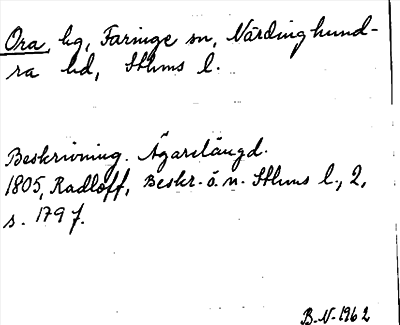 Ora, hg, Faringe sn, Närdinghund-
ra hd, Sthms l.
Beskrivning. Ägarelängd.
1805, Radloff, Beskr. ö. n. Sthms l., 2,
s. 179 f.
B.N. 1962